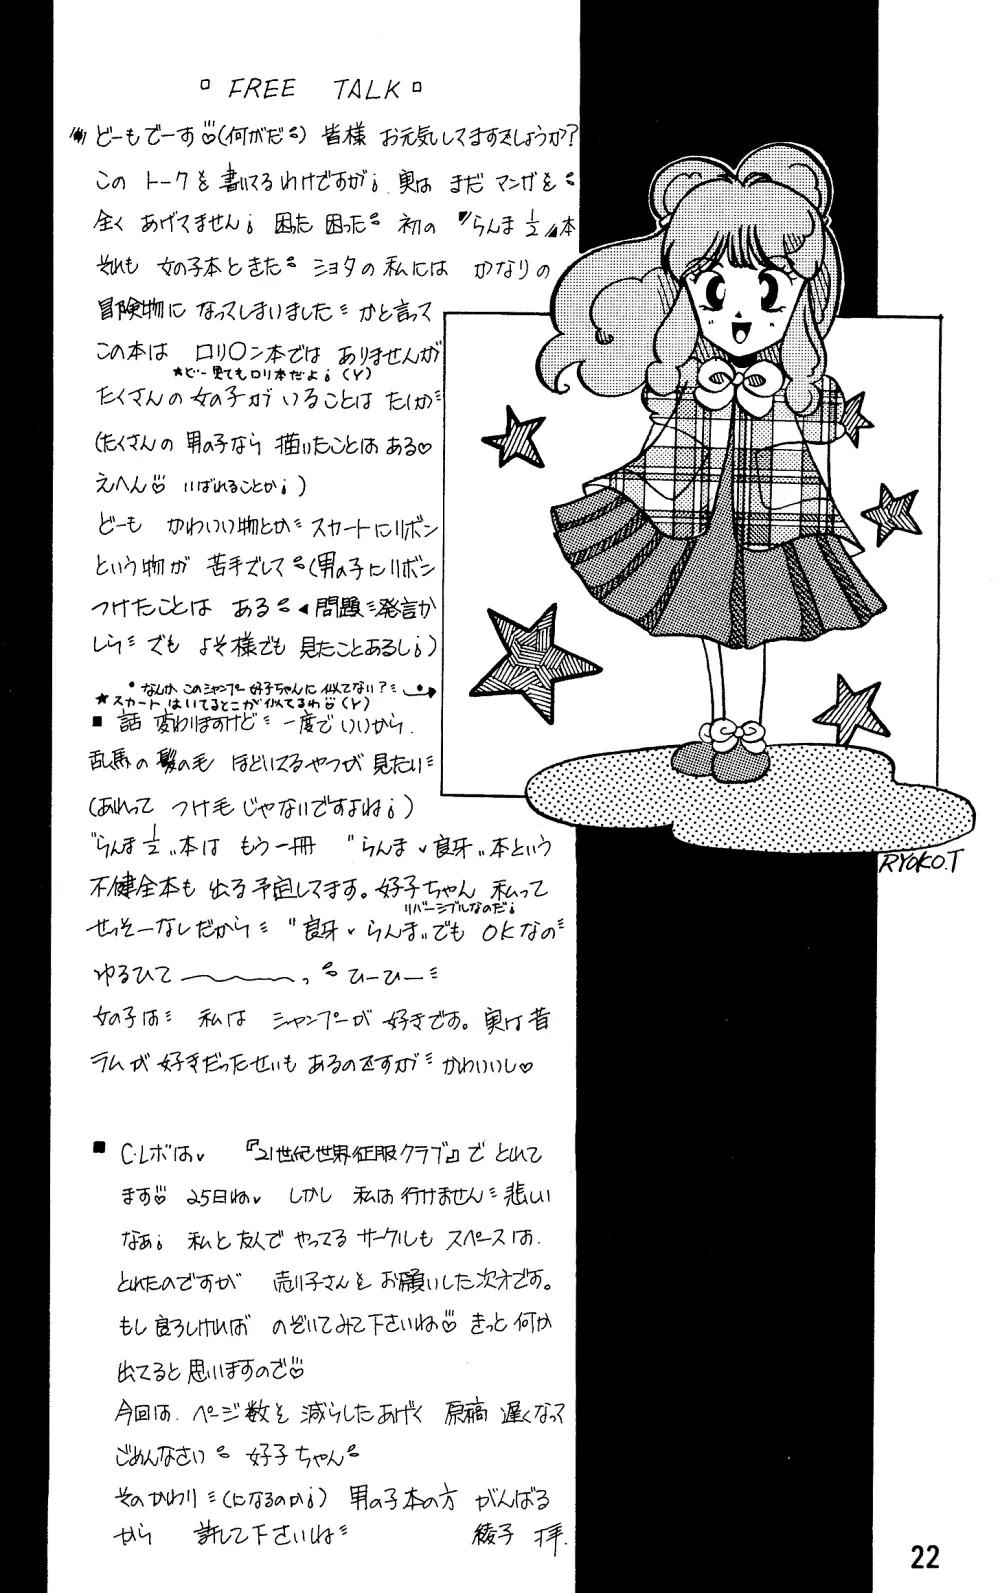 ▫ FREE TALK ▫
どーもでーす♡(何がだ) 皆様 お元気してますでしょうか?
この トークを 書いてるわけですが¡ 実は まだ マンガを
全く あげてません¡ 困った 困った 初の 〝らんま ½〟本
それも 女の子本ときた ショタの私には かなりの
冒険物に なってしまいました かと言って
この本は ロリ○ン本では ありませんが
★どー見てもロリ本だよ¡(Y)
たくさんの 女の子が いることは たしか
(たくさんの 男の子なら 描いたことは ある♡
えへん♡ いばれることか¡)
どーも かわいい物とか スカートにリボン
という物が 苦手でして(男の子にリボン
つけたことは ある ◀問題発言か
しら でも よそ様でも 見たことあるし¡)
・なんか このシャンプー 好子ちゃんに似てない?
★スカート はいてるとこが似てるわ♡(Y)
■ 話 変わりますけど 一度でいいから
乱馬の 髪の毛 ほどいてるやつが 見たい
(あれって つけ毛じゃないですよね¡)
〝らんま ½〟本は もう一冊 〝らんま♥良牙〟本という
不健全本も 出る予定してます。好子ちゃん 私って
リバーシブルなのだ¡
せっそーなしだから 〝良牙♥らんま〟でも OKなの
ゆるひて〜〜〜っ ひーひー
女の子は 私は シャンプーが 好きです。実は 昔
ラムが 好きだったせいも あるのですが かわいいし♡
■ C・レボは♥ 『21世紀世界征服クラブ』で とれて
ます♡ 25日ね♥ しかし 私は 行けません 悲しい
なぁ¡ 私と 友人で やってる サークルも スペースは
とれたのですが 売り子さんを お願いした次第です。
もし 良ろしければ のぞいてみて下さいね♡ きっと 何か
出てると 思いますので♡
今回は ページ数を 減らしたあげく 原稿 遅くなって
ごめんなさい 好子ちゃん
そのかわり(になるのか¡) 男の子本の方 がんばる
から 許して下さいね 綾子 拝.
RYOKO.T
22